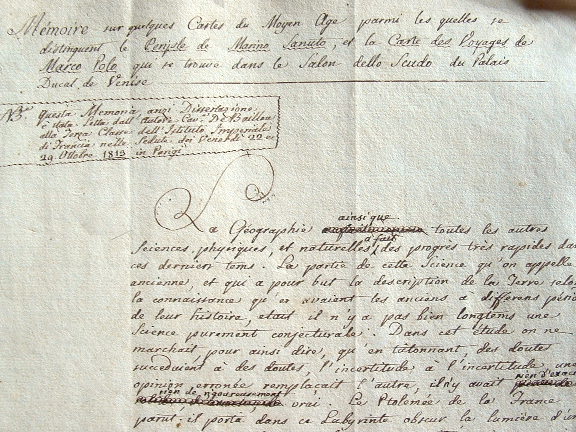 Mémoire sur quelques Cartes du Moyen Age parmi les quelles se
distinguent le Periple de Marino Sanuto, et la Carte des Voyages de
Marco Polo qui se trouve dans le Salon dello Scudo du Palais
Ducal de Venise
NB. Questa Memoria anzi Dissertazione
è stata letta dall' autore Cav.r De Baillou
alla Terza Classe dell' Istituto Imperiale
di Francia nelle Sedute dei Venerdi 22 e
29 Ottobre 1812 in Parigi
ainsi que
La Géographie toutes les autres
Sciences physiques, et naturelles a fait des progrès très rapides dan
ces derniers tems. La partie de cette Science qu'on appelle
ancienne, et qui a pour but la description de la Terre selon
la connaissance qu'en avaient les anciens a differens péri
de leur histoire, etait il n'y a pas bien longtems une
Science purement conjecturale. Dans cet étude on ne
marchait pour ainsi dire, qu'en tatonnant des doutes
succedaient a des doutes, l'incertitude a l'incertitude, une
opinion erronée remplaçait l'autre, il n'y avait rien d'exact
rien de rigoureusement vrai. Le Ptolemée de la France
parut: il porta dans ce Labyrinte obscur la lumière d'